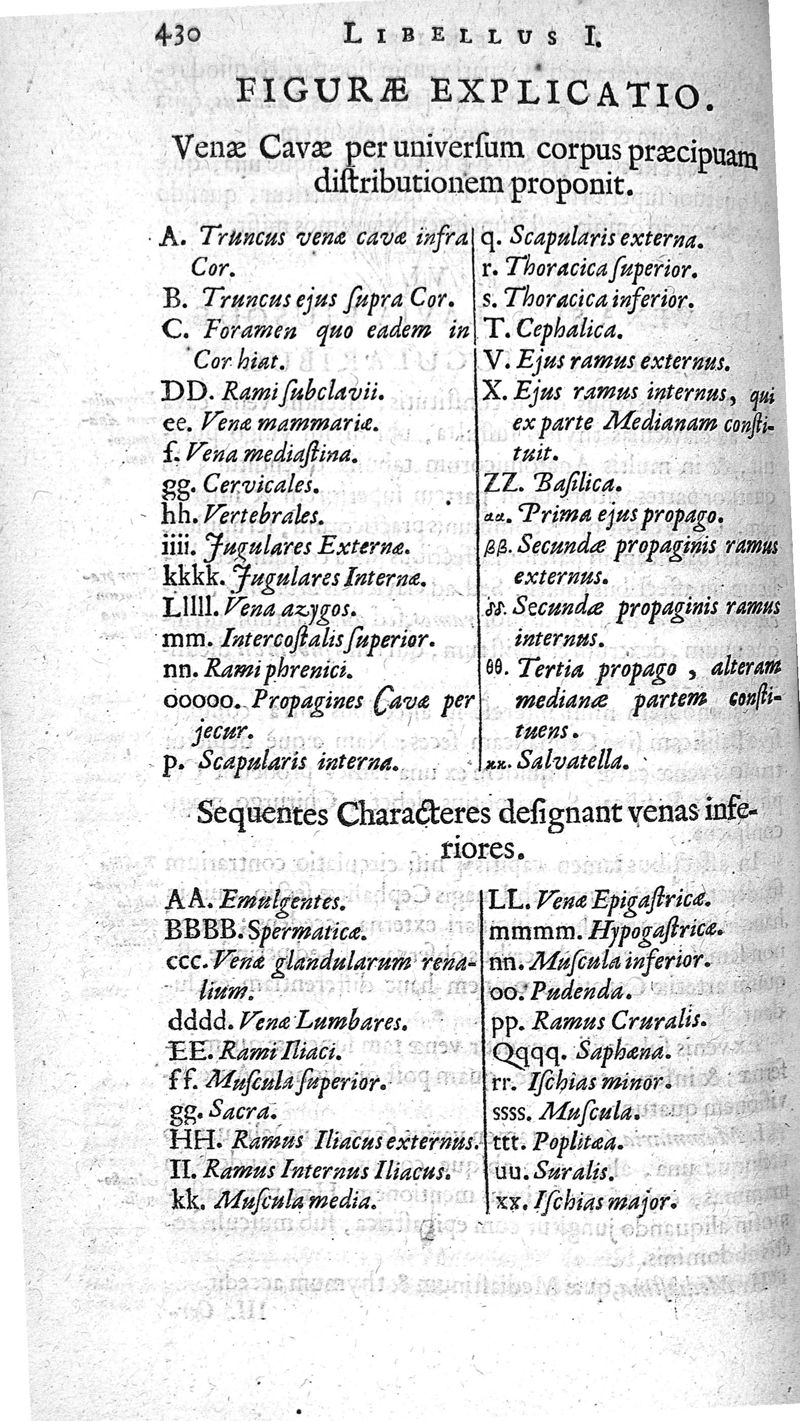 430 LIBELLUS I.
FIGURÆ EXPLICATIO.
Venæ Cavæ per univerſum corpus præcipuam
diſtributionem proponit.
A. Truncus venæ cavæ infra
Cor.
B. Truncus ejus ſupra Cor.
C. Foramen quo eadem in
Cor hiat.
DD. Rami ſubclavii.
ee. Venæ mammariæ.
f. Vena mediaſtina.
gg. Cervicales.
hh. Vertebrales.
iiii. Jugulares Externæ.
kkkk. Jugulares Internæ.
Lllll. Vena azygos.
mm. Intercoſtalis ſuperior.
nn. Rami phrenici.
ooooo. Propagines Cavæ per
jecur.
p. Scapularis interna.
q. Scapularis externa.
r. Thoracica ſuperior.
s. Thoracica inferior.
T. Cephalica.
V. Ejus ramus externus.
X. Ejus ramus internus, qui
ex parte Medianam conſti-
tuit.
ZZ. Baſilica.
αα. Prima ejus propago.
ββ. Secundæ propaginis ramus
externus.
δδ. Secundæ propaginis ramus
internus.
θθ. Tertia propago, alteram
medianæ partem conſti-
tuens.
κκ. Salvatella.
Sequentes Characteres deſignant venas infe-
riores.
AA. Emulgentes.
BBBB. Spermaticæ.
ccc. Venæ glandularum rena-
lium.
dddd. Venæ Lumbares.
EE. Rami Iliaci.
ff. Muſcula ſuperior.
gg. Sacra.
HH. Ramus Iliacus externus.
II. Ramus Internus Iliacus.
kk. Muſcula media.
LL. Venæ Epigaſtricæ.
mmmm. Hypogaſtricæ.
nn. Muſcula inferior.
oo. Pudenda.
pp. Ramus Cruralis.
Qqqq. Saphæna.
rr. Iſchias minor.
ssss. Muſcula.
ttt. Poplitæa.
uu. Suralis.
xx. Iſchias major.